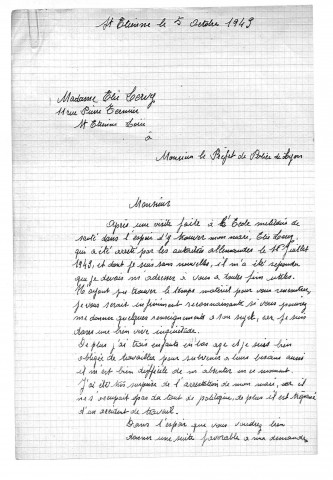 St Etienne le 5 Octobre 1943
Madame Elie
11 rue Pierre
St Etienne Loire
à
Monsieur le Préfet de Police de Lyon
Monsieur
Après une visite faite à l'Ecole militaire de
santé dans l'espoir d'y trouver mon mari, Elie
qui a été arrêté par les autorités allemandes le 16 juillet
1943, et dont je suis sans nouvelles, il m'a été répondu
que je devais m'adresser à vous à toutes fins utiles.
N'ayant pu trouver le temps matériel pour vous rencontrer,
je vous serait infiniment reconnaissante si vous pouviez
me donner quelques renseignements à son sujet, car je suis
dans une bien vive inquiétude.
De plus j'ai trois enfants en bas age et je suis bien
obligée de travailler pour subvenir à leurs besoins aussi
il m'est bien difficile de m'absenter en ce moment.
J'ai été très surprise de l'arrestation de mon mari, car il
ne s'occupait pas du tout de politique, de plus il est
d'un accident de travail.
Dans l'espoir que vous voudrez bien
donner une suite favorable à ma demande,